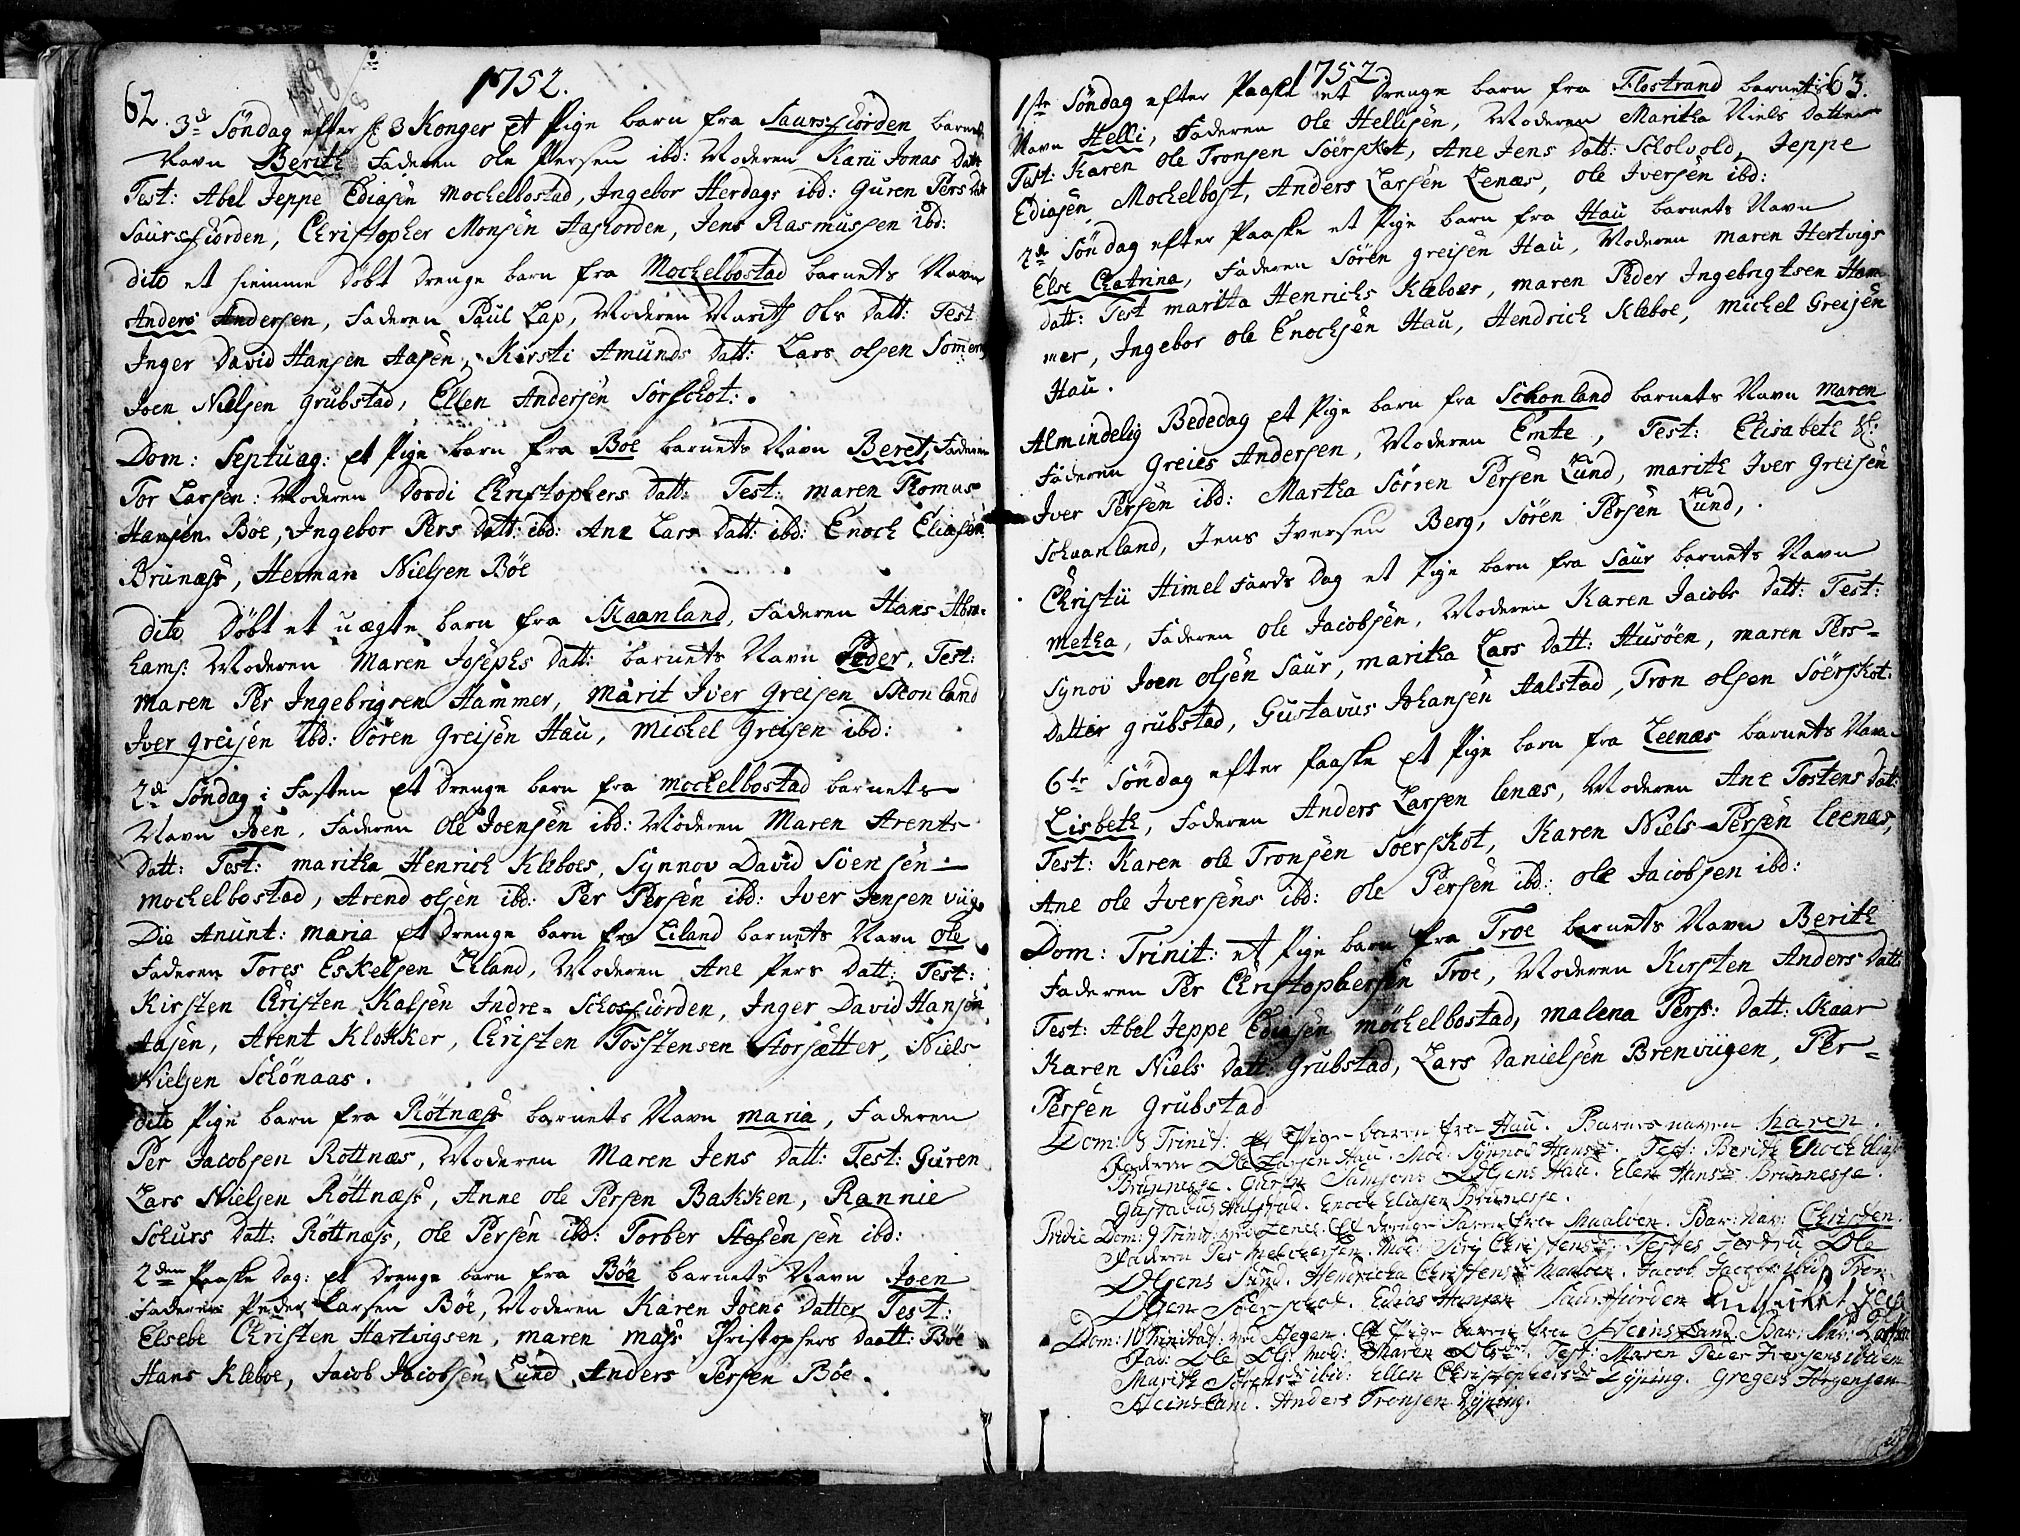 62.
1752.
3d Søndag efter H 3 Konger et Pige barn fra Saursfiorden barnets
Navn Berith Faderen ole Persen ibd: Moderen Karii Jonas Datt
Test: Abel Jeppe Ediasen Mockelbostad, Ingebor Herdags ibd: Guren Pers Datt
Saursfiorden, Christopher Monsen Aasiorden, Jens Rasmussen ibd:
dito et hiemme døbt drenge barn fra Mockelbostad barnets Navn
Anders Andersen, Faderen Paul Lap, Moderen Marith Ols datt: Test
Inger David Hansen Aasen, Kirsti Amunds datt: Lars olsen
Joen Nielsen Grubstad, Ellen Andersen Sørschot:.
Dom: Septuag: et Pige barn fra Boe barnets Navn Beret, Faderen
Tor Larsen: Moderen Dordi Christophers datt: Test: maren Thomas
Hansen Bøe, Ingebor Pers datt: ibd: Ane Lars datt: ibd: Enoch Eliasen
Brunæss, Herman Nielsen Bøe
dito døbt et uægte barn fra Skaanland, Faderen Hans Abra-
hams: Moderen Maren Josephs datt: barnets Navn Peder, Test:
maren Per Ingebrigsen Hammer, Marit Iver Greisen Skonland
Iver Greisen ibd: Søren Greisen Hau, Michel Greisen ibd:
2d Søndag i Fasten et drenge barn fra Mockelbostad barnets
Navn Joen, Faderen Ole Joensen ibd: Moderen Maren Arents
datt: Test: maritha Henrich Kleboes, Synnov David Svensen
mockelbostad, Arend olsen ibd: Per Persen ibd: Iver Jensen viig
Die Anunt: Maria et drenge barn fra Eiland barnets Navn ole
Faderen Tores Eskelsen Eiland, Moderen Ane Pers datt: Test:
Kirsten Christen Kalsen Indre-Schosfiorden, Inger David Hansen
Aasen, Arent Klokker, Christen Tosstensen Storsætter, Niels
Nielsen Schønaas.
dito Pige barn fra Røtnæss barnets Navn maria, Faderen
Per Jacobsen Røttnæs, Moderen Maren Jens datt: Test: Guren
Lars Nielsen Røttnæss, Anne ole Persen Bakken, Rannie
Schurs datt: Røttnæss, ole Persen ibd: Torber ibd:
2den Paaske dag: et drenge barn fra Bøe barnets Navn Joen
Faderen Peder Larsen Bøe, Moderen Karen Joens datter Test:
Elsebe Christen Hartvigsen, maren mass Christophers daatt: Bøe
Hans Kleboe, Jacob Jacobsen Lund Anders Persen Bøe.
1752.
63.
1ste Søndag efter Paaske et drenge barn fra Flostrand barnets
Navn Helli, Faderen Ole Hellisen, Moderen Maritha Niels datter
Test: Karen ole Tronsen Søerskot, Ane Jens datt: Scholvold, Jeppe
Ediasen Mochelbost, Anders Larsen Lenæs, ole Iversen ibd:
2de Søndag efter Paaske et Pige barn fra Hau barnets Navn
Else Chatrina, Faderen Søren greisen Hau, Moderen maren Hertvigs
datt: Test maritta Henrichs Kleboer, maren Peder Ingebrigtsen Ham
mer, Ingebor ole Enochsen Hau, Hendrich Kleboe, Michel Greisen
Hau.
Almindelig Bededag et Pige barn fra Schonland barnets Navn maren
Faderen Greies Andersen, Moderen Emte, Test: Elisabeth
Iver Persen ibd: Martha Sørren Persen Lund, marith Iver Greisen
Schaanland, Jens Iversen Berg, Søren Persen Lund,
Christii Himel Fards dag et Pige barn fra Saur barnets Navn
metha, Faderen ole Jacobsen, Moderen Karen Jacobs datt: Test:
Synov Joen olsen Saur, maritha Lars datt: Husøen, maren Pers-
datter grubstad, Gustavus Johansen Aalstad, Tron olsen Søerskot:
6te Søndag efter Paaske et Pige barn fra Leenæs barnets Navn
Lisbeth, Faderen Anders Larsen lenæs, Moderen Ane Tostens datt:
Test: Karen ole Tronsen Søerskot, Karen Niels-Persen leenæs,
Ane ole Iversens ibd: ole Persen ibd: ole Jacobsen ibd:
Dom: Trinit: et Pige barn fra Troe barnets Navn Berith
Faderen Per Christophersen Troe, Moderen Kirsten Anders datt
Test: Abel Jeppe Ediasen møckelbostad, malena Pers: datt: Skaar
Karen Niels datt: Grubstad, Lars Danielsen Brenviigen, Per-
Persen Grubstad
Dom: 8 Trinit: et Pige barn fra Hau. Barnes navn haren.
Faderen Ole Larsen Hau. Moe: Synnov Hans. Test: Berith Enoch Elias
Brunnesse. Guren Samsons Olsens Hau. Elen Hans Brunnesse.
Gustavus Aalstad. Enoch Eliasen Brunesse.
Pridie Dom: 9 Trinit: ved Lenes. Et drenge barn fra Maaloen. Bar: Nav: Christen.
Faderen Per Moe: Siri Christens. Testes
Olsens Lund. Hendricha Christens Maaloen. Jacob ibid Tron
Olsen Søer schot. Edias Hansen Saursfiorden
Dom: 10 Trinitat: ved Hegen. Et Pige barn fra Steinsland. Bar: Nav:
Fad: Ole Ols: Mod: Maren Ols. Test: Maren Peder Iversens ibidem
Marith Sørens ibid: Ellen Christophers Dyping. Gregers Jørgensen
Steinsland. Anders Tronsen Dyping.